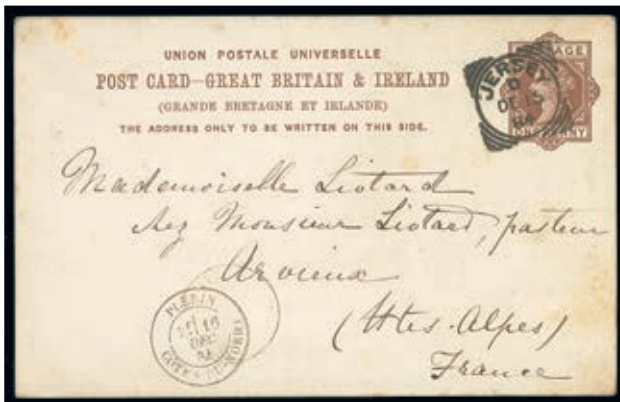 UNION POSTALE UNIVERSELLE
POST CARD–GREAT BRITAIN & IRELAND
(GRANDE BRETAGNE ET IRLANDE)
THE ADDRESS ONLY TO BE WRITTEN ON THIS SIDE.
JERSEY
D
DE 15
84
ONE PENNY
Mademoiselle Liotard
chez Monsieur Liotard, pasteur
Arvieux
(Htes-Alpes)
France
16
DEC
84
COTES-DU-NORD